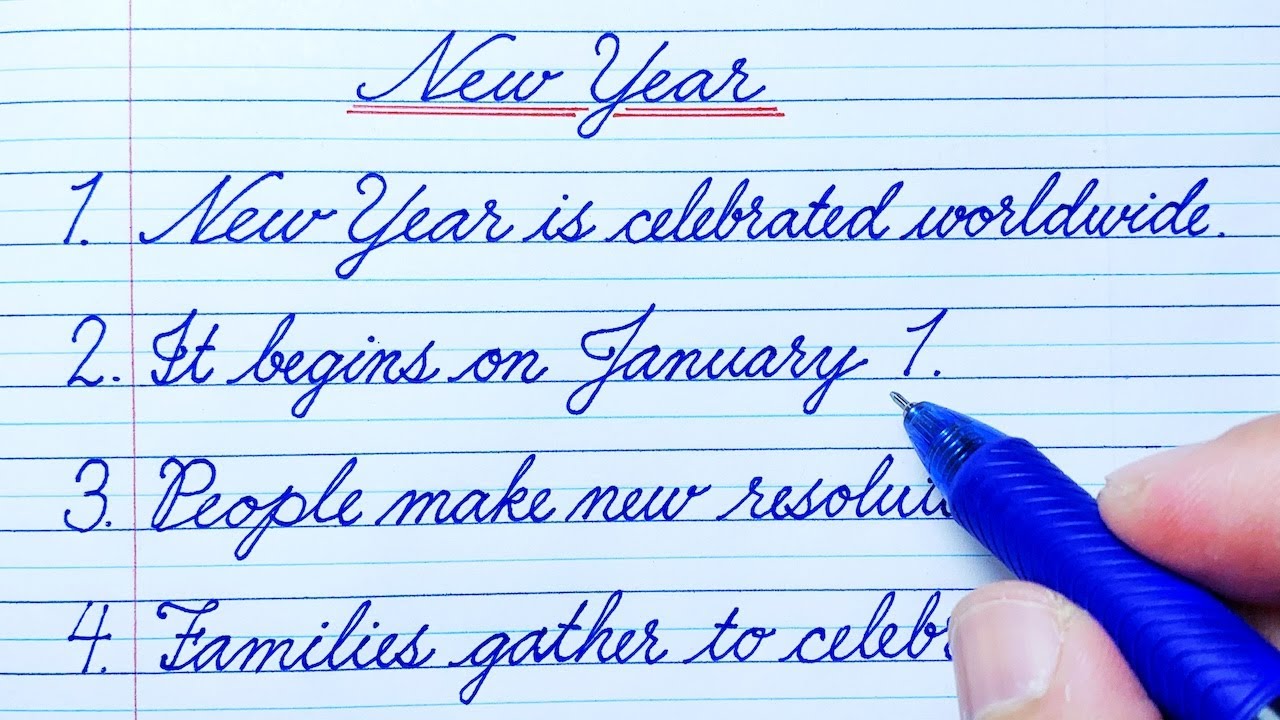 New Year
1. New Year is celebrated worldwide.
2. It begins on January 1.
3. People make new
4. Families gather to